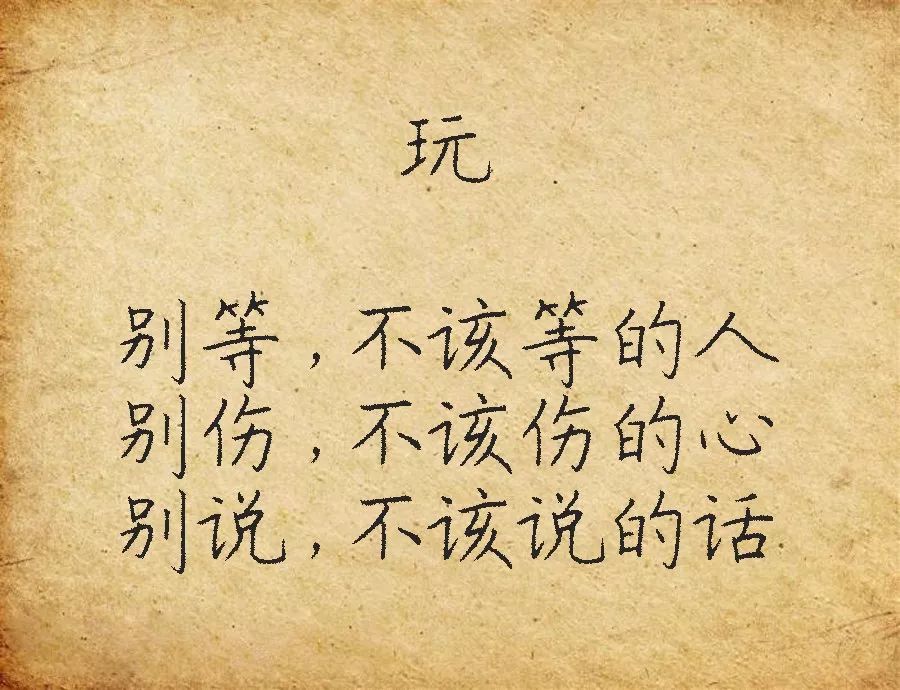 玩
别等,不该等的人
别伤,不该伤的心
别说,不该说的话